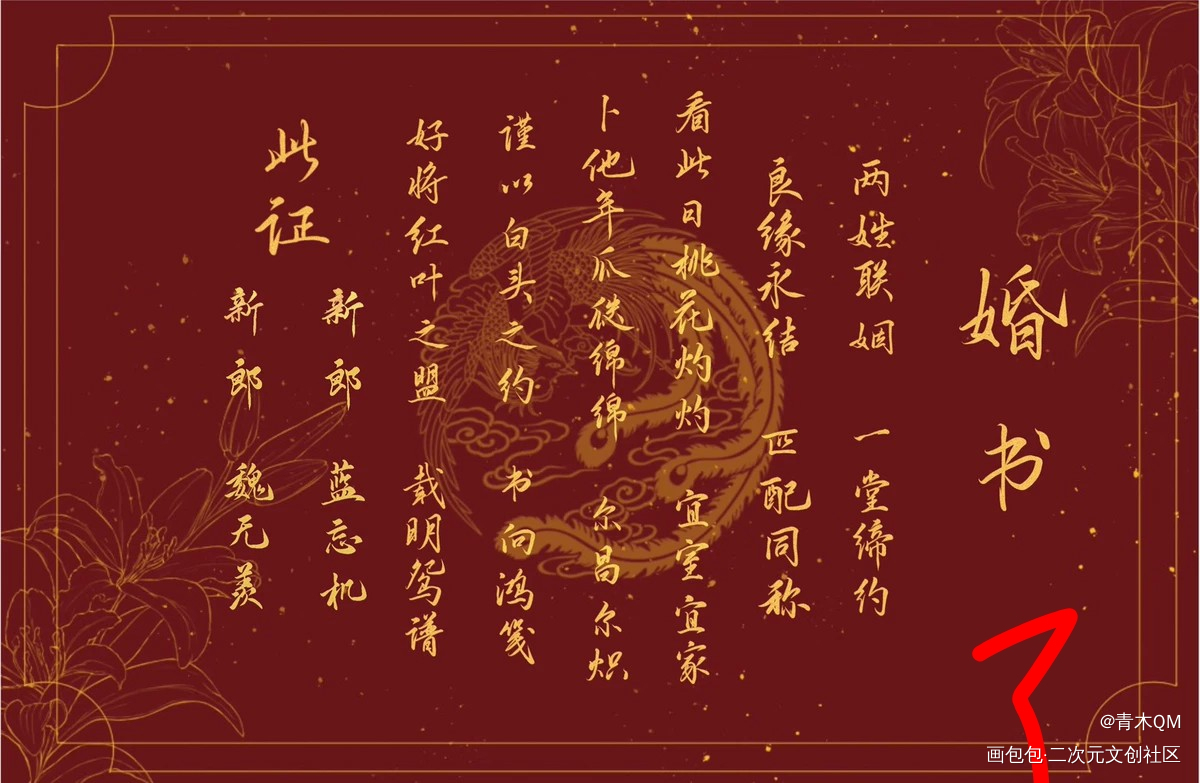 婚书
两姓联姻 一堂缔约
良缘永结 匹配同称
看此日桃花灼灼 宜室宜家
卜他年瓜瓞绵绵 尔昌尔炽
谨以白头之约 书向鸿笺
好将红叶之盟 载明鸳谱
此证
新郎 蓝忘机
新郎 魏无羡
@青木QM
画包包·二次元文创社区